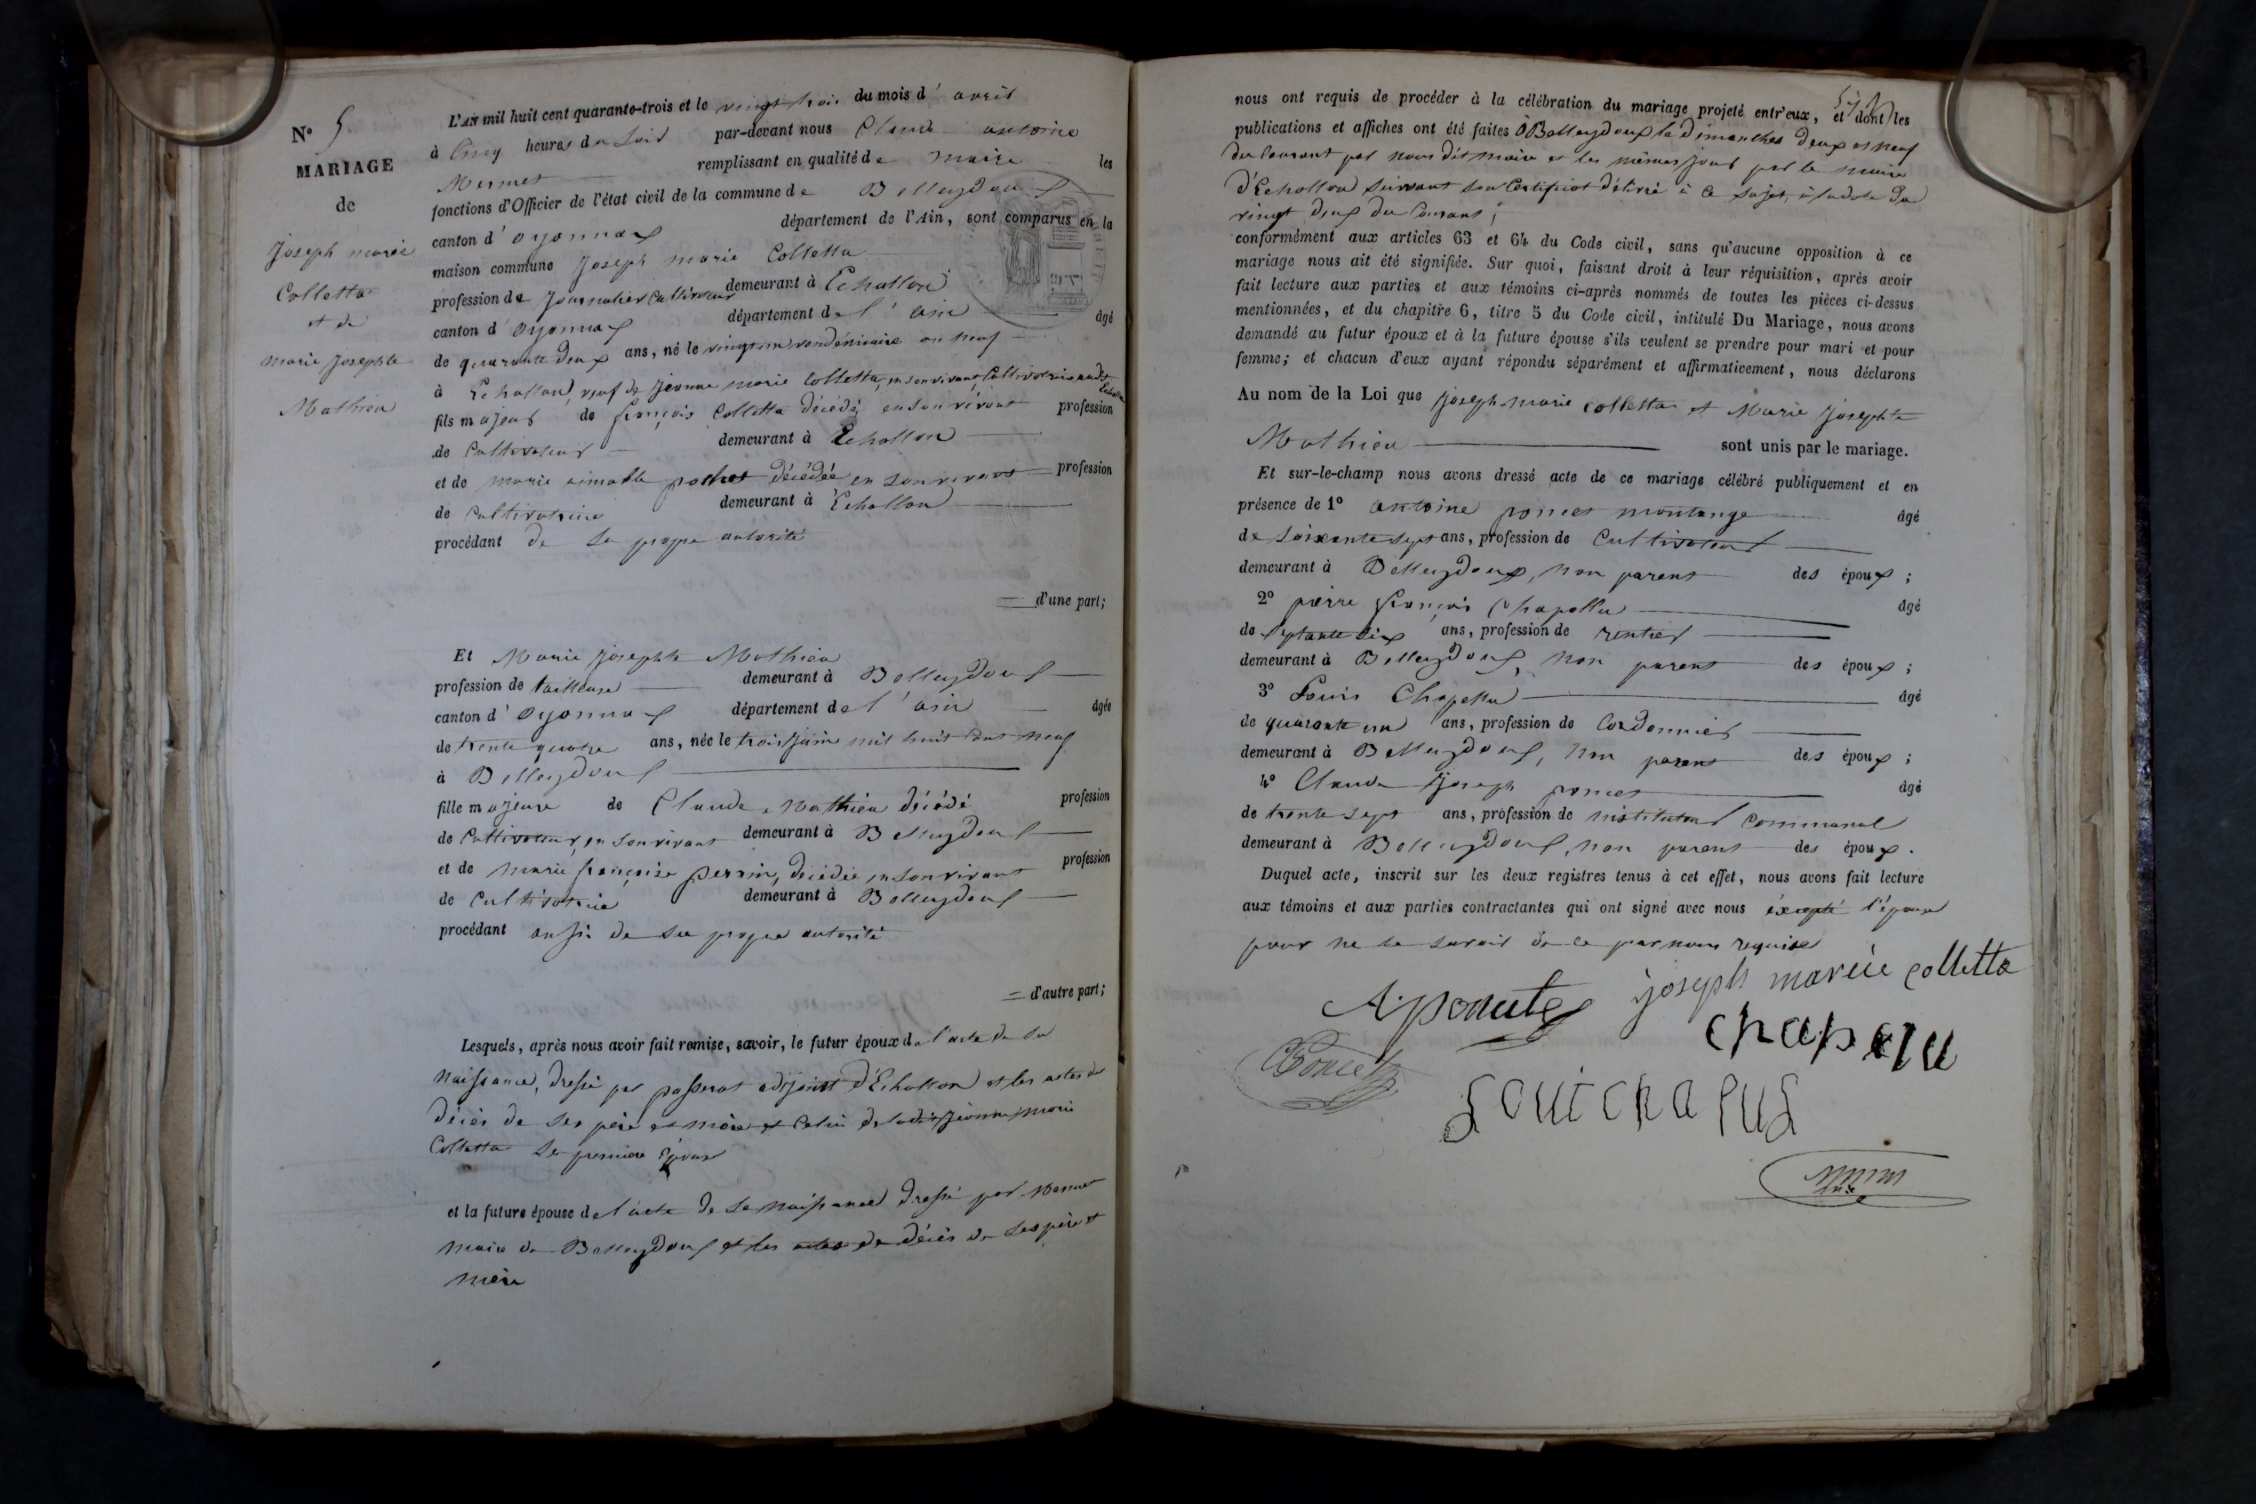 N° 5
MARIAGE
de
Joseph marie
Colletta
et de
marie Josephte
Mathieu
L'AN mil huit cent quarante-trois et le vingt trois du mois d'avril
à Cinq heures du Soir par-devant nous Claude antoine
Mermet remplissant en qualité de maire les
fonctions d'Officier de l'état civil de la commune de Belleydoux
canton d'oyonnax département de l'Ain, sont comparus en la
maison commune Joseph marie Colletta
profession de Journalier Cultivateur demeurant à Echallon
canton d'oyonnax département de l'ain âgé
de quarante deux ans, né le vendémiaire an neuf
à Echallon, veuf de Jeanne marie Colletta, en son vivant Cultivatrice
fils majeur de françois Colletta décédé en son vivant profession
de Cultivateur demeurant à Echallon
et de marie aimable pochet décédée en son vivant profession
de Cultivatrice demeurant à Echallon
procédant de sa propre autorité
d'une part;
Et Marie Josephte Mathieu
profession de tailleuse demeurant à Belleydoux
canton d'oyonnax département de l'ain âgée
de trente quatre ans, née le trois Juin mil huit cent neuf
à Belleydoux
fille majeure de Claude Mathieu décédé profession
de Cultivateur, en son vivant demeurant à Belleydoux
et de marie françoise perrin, décédée en son vivant profession
de Cultivatrice demeurant à Belleydoux
procédant aussi de sa propre autorité
d'autre part;
Lesquels, après nous avoir fait remise, savoir, le futur époux de l'acte de sa
naissance, dressé par passerat adjoint d'Echallon et les actes de
décès de ses père et mère et Celui de ladite Jeanne marie
Colletta sa première épouse
et la future épouse de l'acte de sa naissance dressé par Mermet
maire de Belleydoux et les actes de décès de ses père et
mère
nous ont requis de procéder à la célébration du mariage projeté entr'eux, et dont les
publications et affiches ont été faites à Belleydoux le dimanches deux et neuf
du Courant par nous dit maire et les mêmes jours par le maire
d'Echallon suivant son Certificat délivré à ce sujet, à la date du
vingt deux du Courant;
conformément aux articles 63 et 64 du Code civil, sans qu'aucune opposition à ce
mariage nous ait été signifiée. Sur quoi, faisant droit à leur réquisition, après avoir
fait lecture aux parties et aux témoins ci-après nommés de toutes les pièces ci-dessus
mentionnées, et du chapitre 6, titre 5 du Code civil, intitulé Du Mariage, nous avons
demandé au futur époux et à la future épouse s'ils veulent se prendre pour mari et pour
femme; et chacun d'eux ayant répondu séparément et affirmativement, nous déclarons
Au nom de la Loi que Joseph marie colletta et Marie Josephte
Mathieu sont unis par le mariage.
Et sur-le-champ nous avons dressé acte de ce mariage célébré publiquement et en
présence de 1° antoine poncet montange âgé
de soixante sept ans, profession de Cultivateur
demeurant à Belleydoux, non parent des époux;
2° pierre françois Chapellu âgé
de septante dix ans, profession de rentier
demeurant à Belleydoux, non parent des époux;
3° Louis Chapellu âgé
de quarante un ans, profession de Cordonnier
demeurant à Belleydoux, non parent des époux;
4° Claude Joseph poncet âgé
de trente sept ans, profession de instituteur Communal
demeurant à Belleydoux, non parent des époux.
Duquel acte, inscrit sur les deux registres tenus à cet effet, nous avons fait lecture
aux témoins et aux parties contractantes qui ont signé avec nous excepté l'épouse
pour ne le savoir de ce par nous requise
joseph mariie colletta
chapelu
Poncet